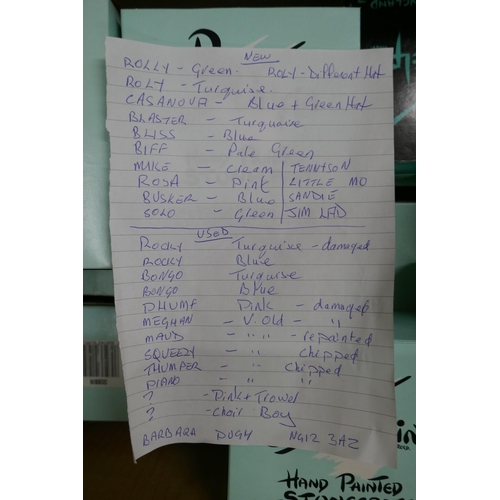 NEW
ROLLY - Green. ROLY - Different Hat
ROLY - Turquise.
CASANOVA - Blue + Green Hat
BLASTER - Turquoise
BLISS - Blue
BIFF - Pale Green
MIKE - Cream TENNYSON
ROSA - Pink LITTLE MO
BUSKER - Blue SANDIE
SOLO - Green JIM LAD
USED
ROCKY Turquise - damaged
ROCKY Blue
BONGO Turquise
BONGO Blue
DHUMF Pink - damaged
MEGHAN - V. Old - "
MAUD - " " - repainted
SQUEEZY - " chipped
THUMPER - " chipped
PIANO - " "
? - Pink + Trowel
? - Choir Boy
BARBARA NG12 3AZ
HAND PAINTED